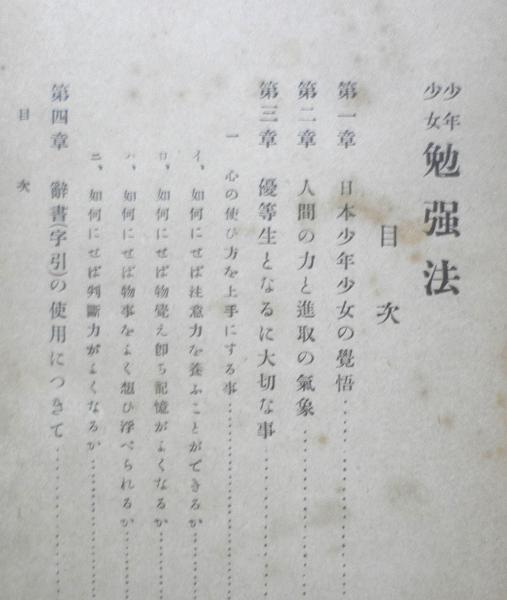 少年少女 勉强法
目次
第一章 日本少年少女の覺悟
第二章 人間の力と進取の氣象
第三章 優等生となるに大切な事
一 心の使ひ方を上手にする事
イ、如何にせば注意力を養ふことができるか
ロ、如何にせば物覺え卽ち記憶がよくなるか
ハ、如何にせば物事をよく想ひ浮べられるか
ニ、如何にせば判斷力がよくなるか
第四章 辭書(字引)の使用につきて
目次